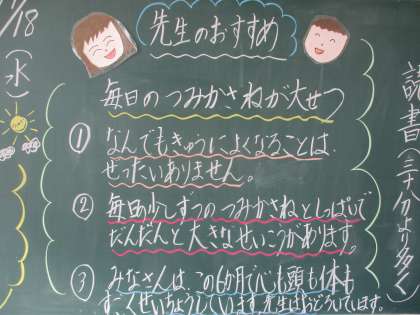 11/18
(水)
先生のおすすめ
毎日のつみかさねが大せつ
① なんでもきゅうによくなることは、
ぜったいありません。
② 毎日少しずつのつみかさねとしっぱいで
だんだんと大きなせいこうがあります。
③ みなさんは、この6か月で心も頭も体も
すごくせいちょうしています。先生はおどろいています。
読書(二十分より多く)